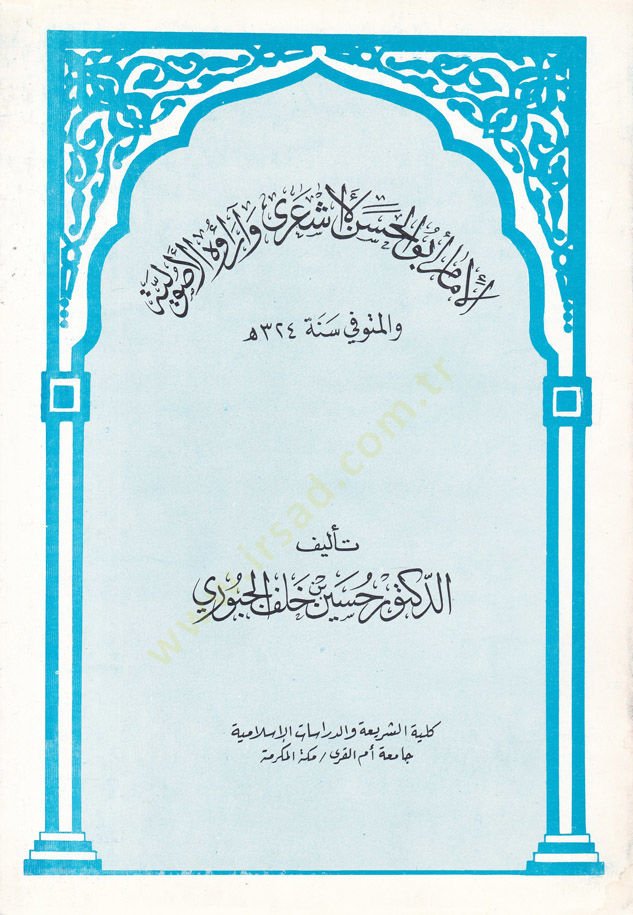 الإمام أبو الحسن الأشعري وآراؤه الأصولية
والمتوفي سَنَة ٣٢٤ه
تأليف
الدّكتور حُسَين بن خَلف الجبُوري
كلية الشريعة والدراسات الإسلامية
جامعة أم القرى / مكة المكرمة
www.irsad.com.tr